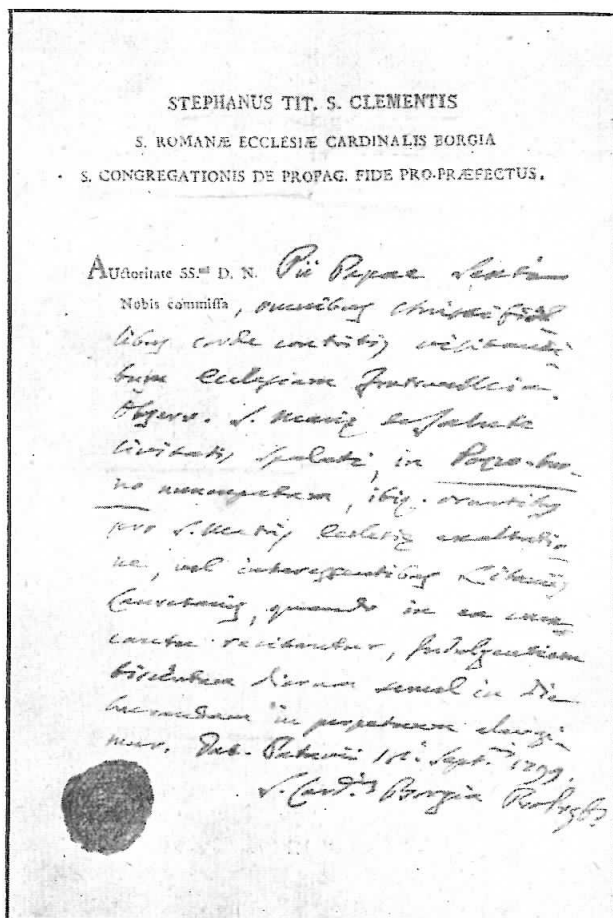 STEPHANUS TIT. S. CLEMENTIS
S. ROMANÆ ECCLESIÆ CARDINALIS BORGIA
S. CONGREGATIONIS DE PROPAG. FIDE PRO-PRÆFECTUS.
AUctoritate SS.mi D. N. Pii Papae Sexti
Nobis commissa, omnibus Christi fide
libus corde contritis visitanti
bus ecclesiam Fratrum
Observ. S. Mariæ de Salute
Civitatis Spalati, in Pozzo-buo
no nuncupatam, ibiq. orantibus
pro S. Matris Ecclesiæ exaltatio
ne, vel interessentibus Litaniis
Lauretanis, quando in ea
recitantur, Indulgentiam
dierum semel in die
lucrandam in perpetuum elargi
mur. Dat. Patavii Sept. 1799.
S. Card. Borgia